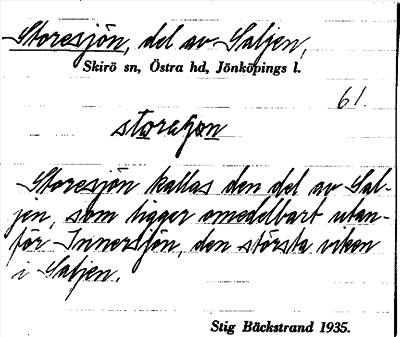 Storesjön, del av Saljen,
Skirö sn, Östra hd, Jönköpings l.
61.
storesjön
Storesjön kallas den del av Sal-
jen, som ligger omedelbart utan-
för Innersjön, den största viken
i Saljen.
Stig Bäckstrand 1935.